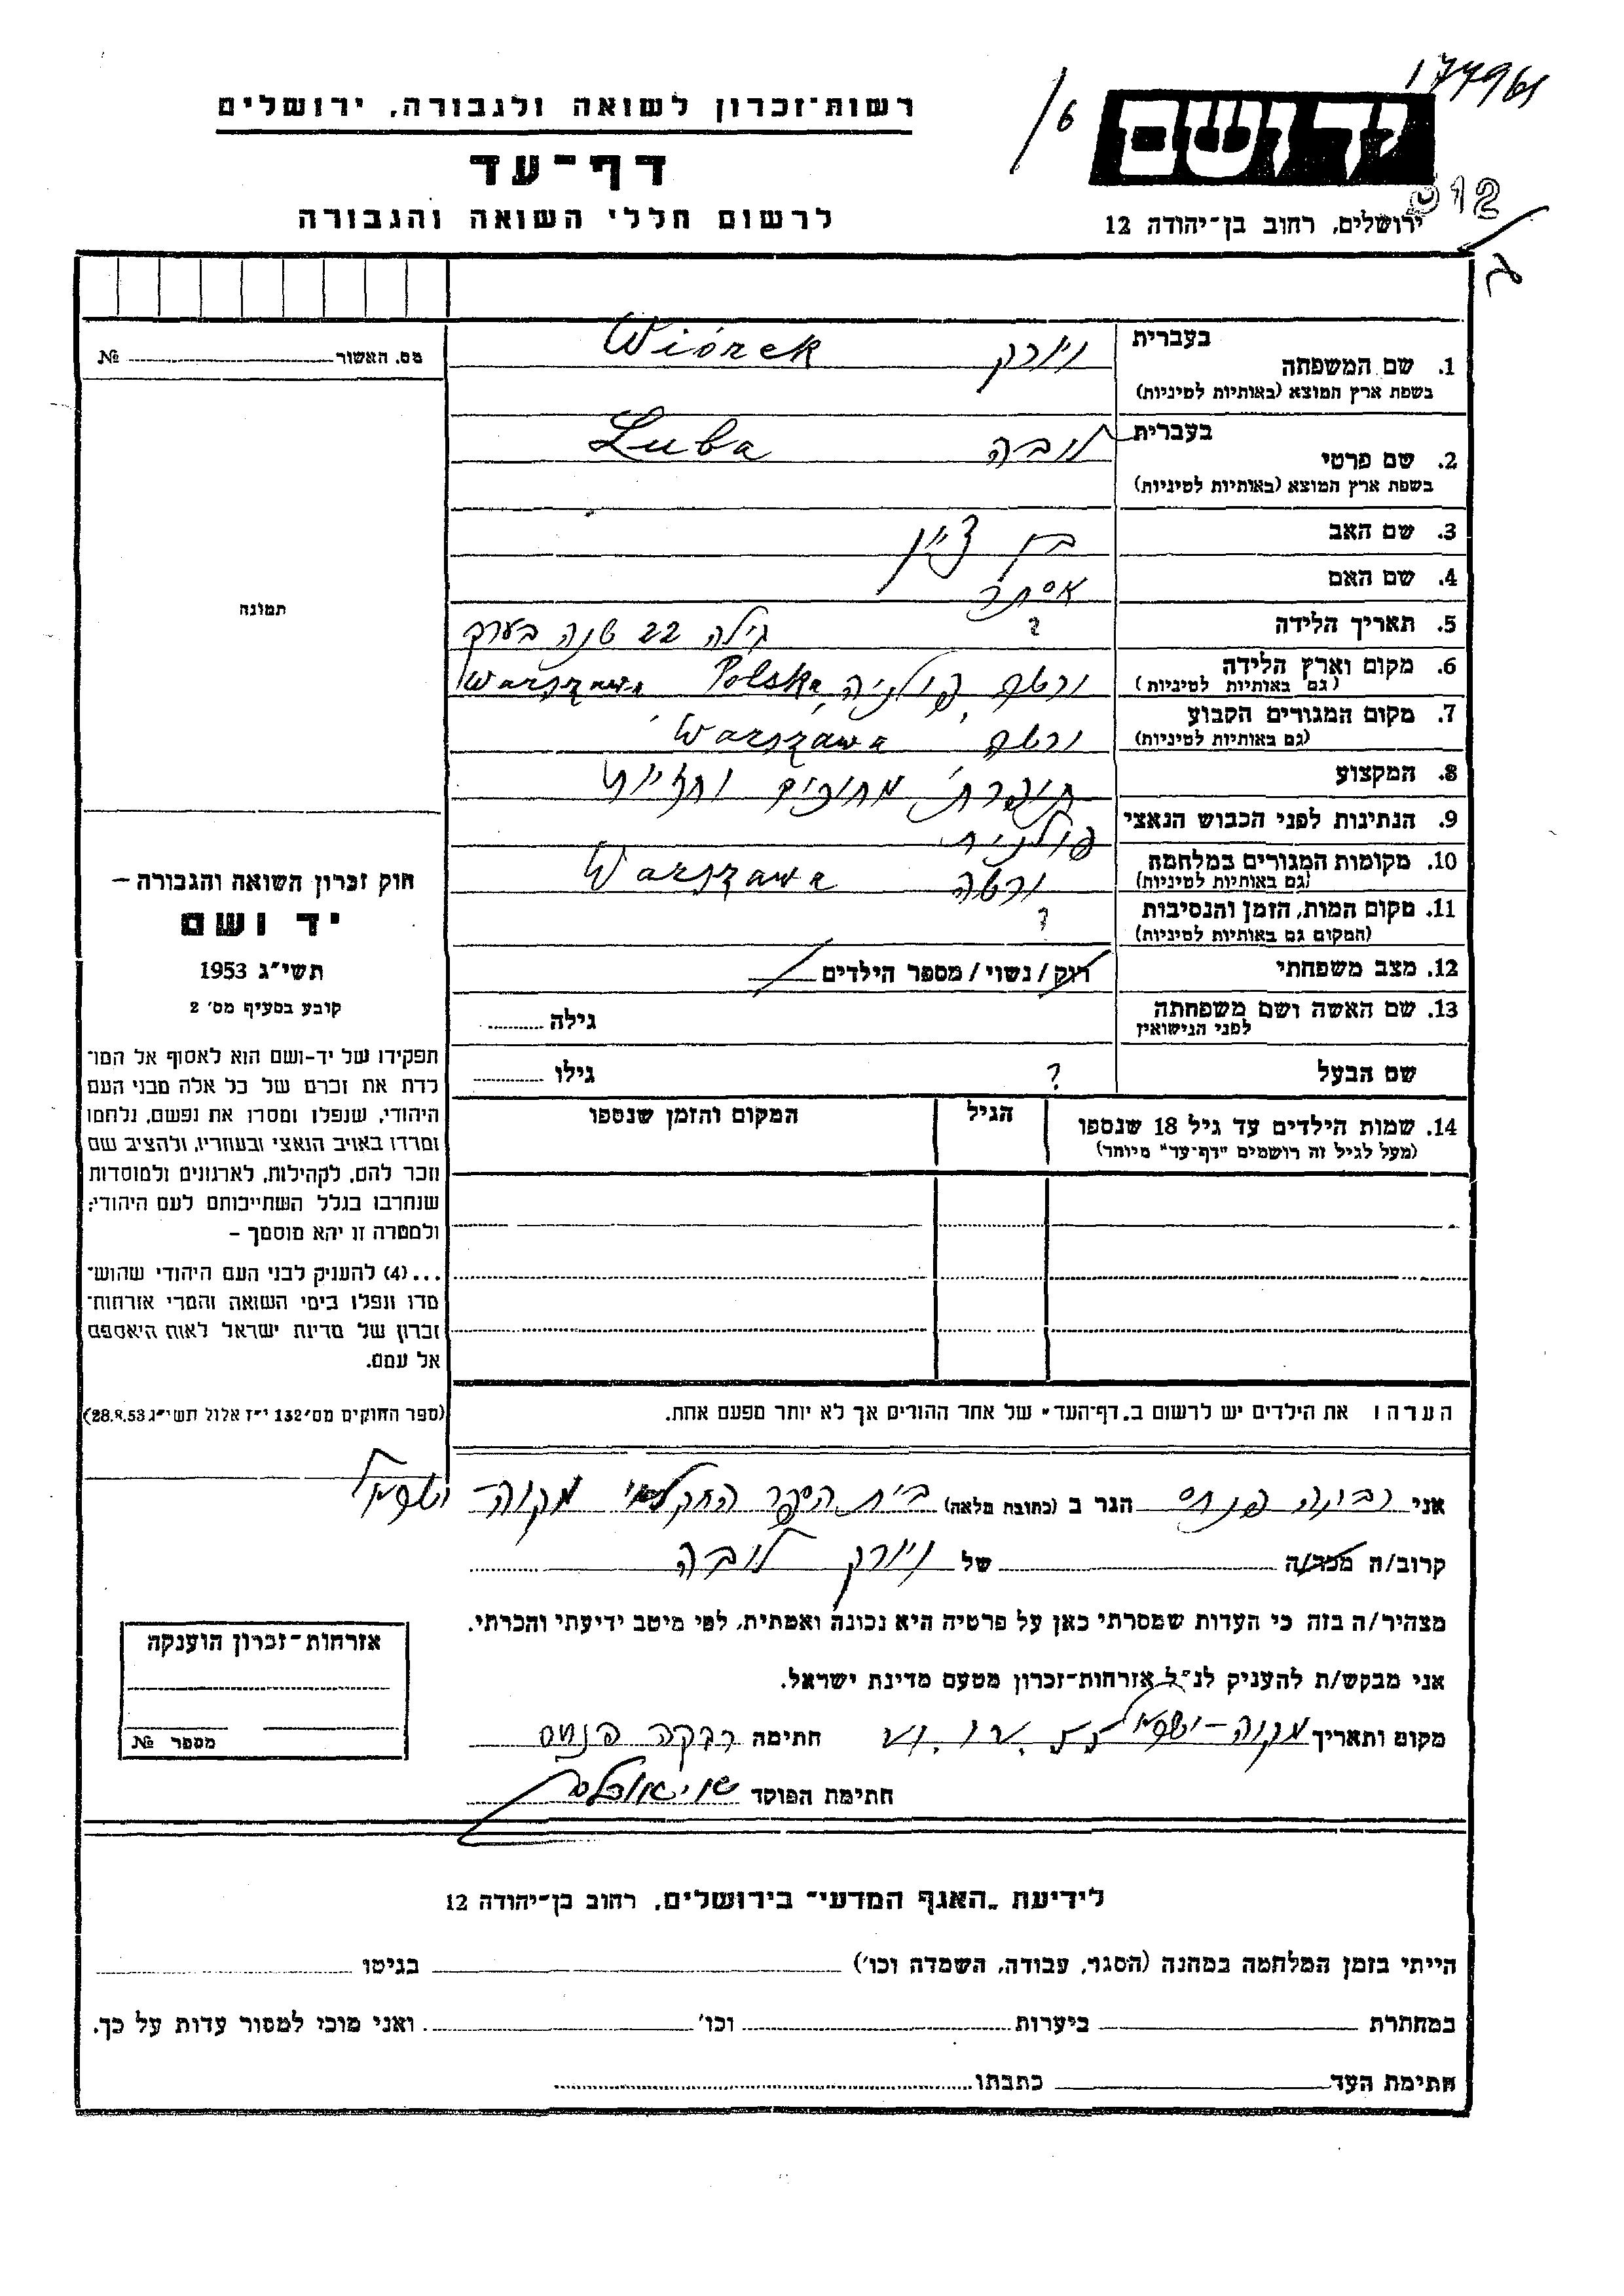 174961
רשות־זכרון לשואה ולגבורה, ירושלים
6/
יד ושם
דף־עד
לרשום חללי השואה והגבורה
ירושלים, רחוב בן־יהודה 12
912
מס. האשור № 
בעברית
1. שם המשפחה ויורק Wiórek
בשפת ארץ המוצא (באותיות לטיניות)
בעברית
2. שם פרטי לובה Luba
בשפת ארץ המוצא (באותיות לטיניות)
3. שם האב בן ציון
4. שם האם אסתר
תמונה
5. תאריך הלידה ? גילה 22 שנה בערך
6. מקום וארץ הלידה ורשה, פולניה Polska, Warszawa
(גם באותיות לטיניות)
7. מקום המגורים הקבוע ורשה Warszawa
(גם באותיות לטיניות)
8. המקצוע תופרת מחוכים וחזיות
9. הנתינות לפני הכבוש הנאצי פולנית
10. מקומות המגורים במלחמה ורשה Warszawa
(גם באותיות לטיניות)
11. מקום המות, הזמן והנסיבות ?
(המקום גם באותיות לטיניות)
12. מצב משפחתי רוק/נשוי/מספר הילדים
13. שם האשה ושם משפחתה גילה
לפני הנישואין
שם הבעל ? גילו
14. שמות הילדים עד גיל 18 שנספו הגיל המקום והזמן שנספו
(מעל לגיל זה רושמים "דף־עד" מיוחד)
חוק זכרון השואה והגבורה –
יד ושם
תשי״ג 1953
קובע בסעיף מס׳ 2
תפקידו של יד-ושם הוא לאסוף אל המו־
לדת את זכרם של כל אלה מבני העם
היהודי, שנפלו ומסרו את נפשם, נלחמו
ומרדו באויב הנאצי ובעוזריו, ולהציב שם
וזכר להם, לקהילות, לארגונים ולמוסדות
שנחרבו בגלל השתייכותם לעם היהודי;
ולמטרה זו יהא מוסמך –
...(4) להעניק לבני העם היהודי שהוש־
מדו ונפלו בימי השואה והמרי אזרחות־
זכרון של מדינת ישראל לאות היאספם
אל עמם.
(ספר החוקים מס׳ 132 י״ז אלול תשי״ג 28.8.53)
הערה: את הילדים יש לרשום ב„דף־העד״ של אחד ההורים אך לא יותר מפעם אחת.
אני רבקה פנחס הגר ב (כתובת מלאה) בית הספר החקלאי מקוה־ישראל
קרוב/ה מכר/ה של ויורק לובה
מצהיר/ה בזה כי העדות שמסרתי כאן על פרטיה היא נכונה ואמתית, לפי מיטב ידיעתי והכרתי.
אני מבקש/ת להעניק לנ״ל אזרחות־זכרון מטעם מדינת ישראל.
מקום ותאריך מקוה־ישראל חתימה רבקה פנחס
חתימת הפוקד
אזרחות־זכרון הוענקה
מספר №
לידיעת „האגף המדעי״ בירושלים, רחוב בן־יהודה 12
הייתי בזמן המלחמה במחנה (הסגר, עבודה, השמדה וכו׳) בגיטו
במחתרת ביערות וכו׳ ואני מוכן למסור עדות על כך.
חתימת העד כתבתו